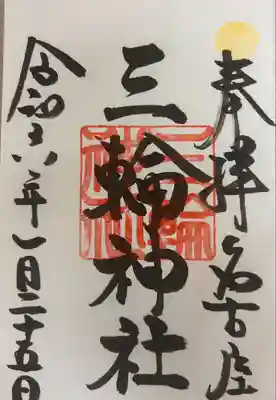 奉拝 名古屋
三輪神社
令和六年一月二十五日